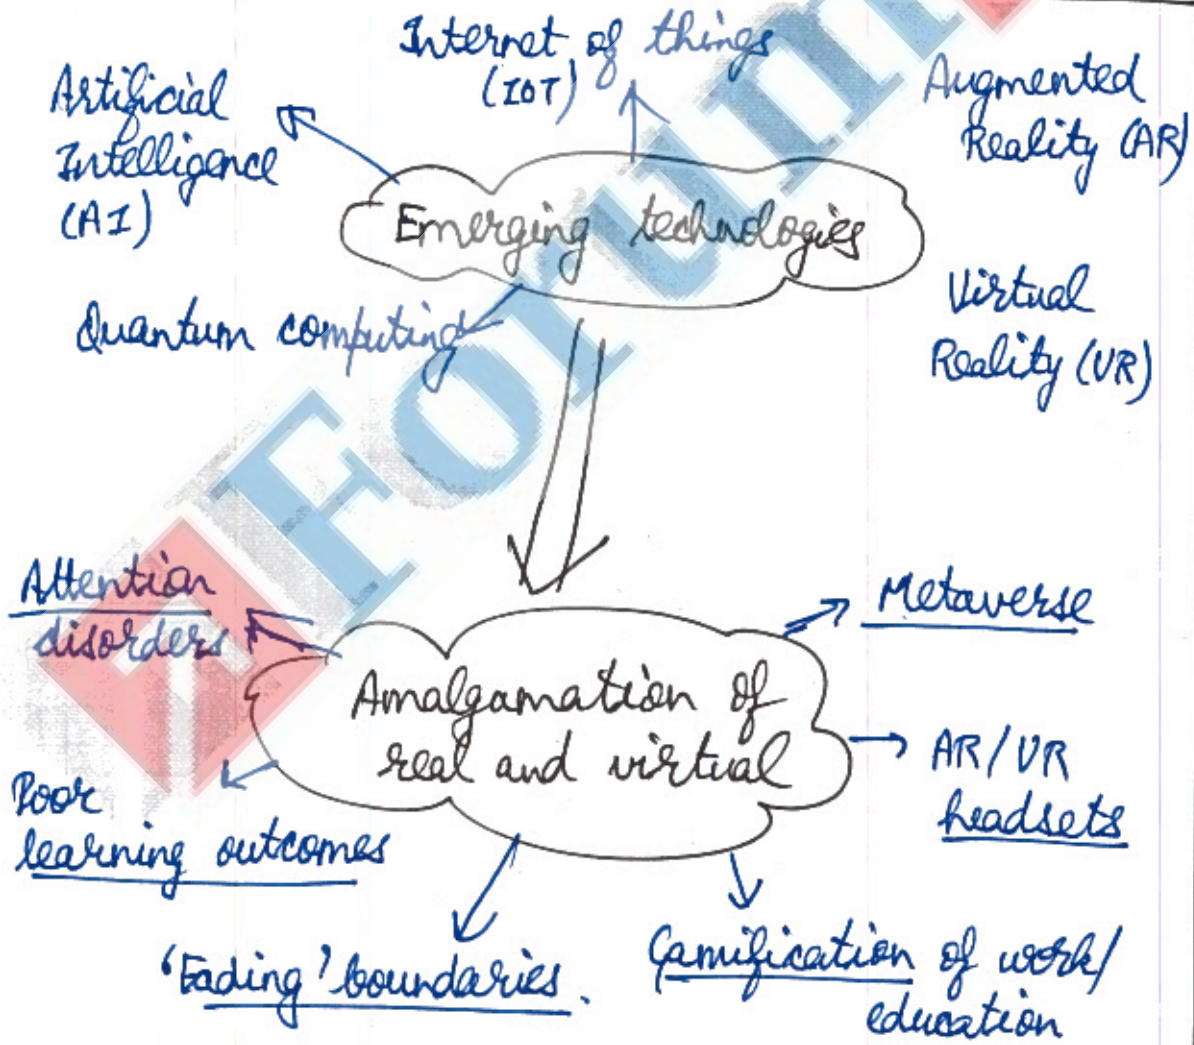 Internet of things
(IOT)
Artificial
Intelligence
(AI)
Augmented
Reality (AR)
Emerging technologies
Quantum computing
Virtual
Reality (VR)
Attention
disorders
Metaverse
Amalgamation of
real and virtual
AR/VR
headsets
Poor
learning outcomes
'Fading' boundaries.
Gamification of work/
education
Forum